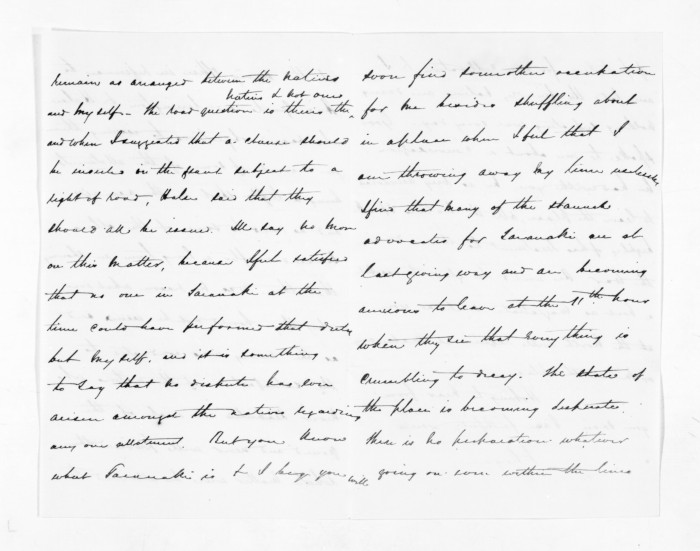 remain as arranged between the natives
natives & not ours
and myself - The road question is theirs tho
and when I suggested that a clause should
be inserted in the grant subject to a
right of road, Halse said that they
should all be issued. I'll say no more
on this matter, because I feel satisfied
that no one in Taranaki at the
time could have performed that duty
but myself, and it is something
to say that no dispute has ever
arisen amongst the natives regarding
any one allotment. But you know
what Taranaki is & I beg you will
soon find some other occupation
for me besides shuffling about
in a place where I feel that I
am throwing away my time uselessly
I find that many of the staunch
advocates for Taranaki are at
last giving way and are becoming
anxious to leave at the 11th hour
when they see that everything is
crumbling to decay. The state of
the place is becoming desperate.
there is no preparation whatever
going on even within the lines